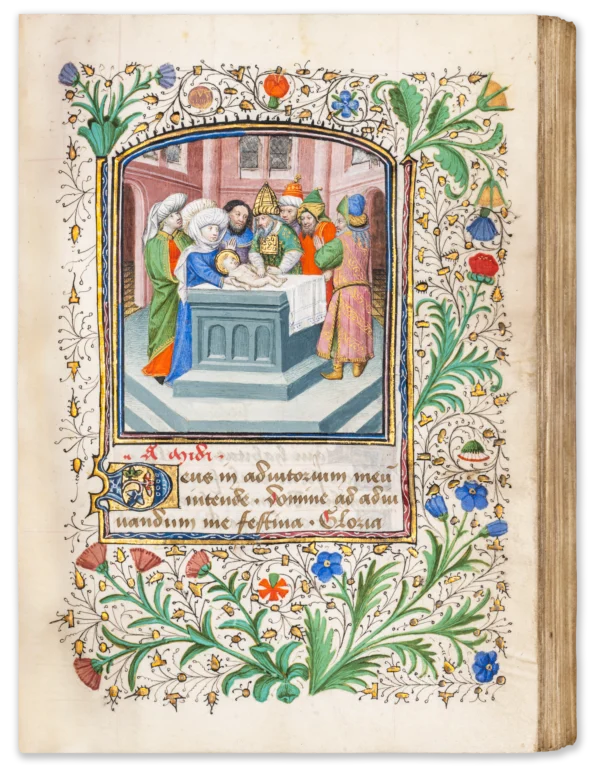 A midi ·
Deus in adiutorium meū
intende · Domine ad adiu
uandum me festina · Gloria